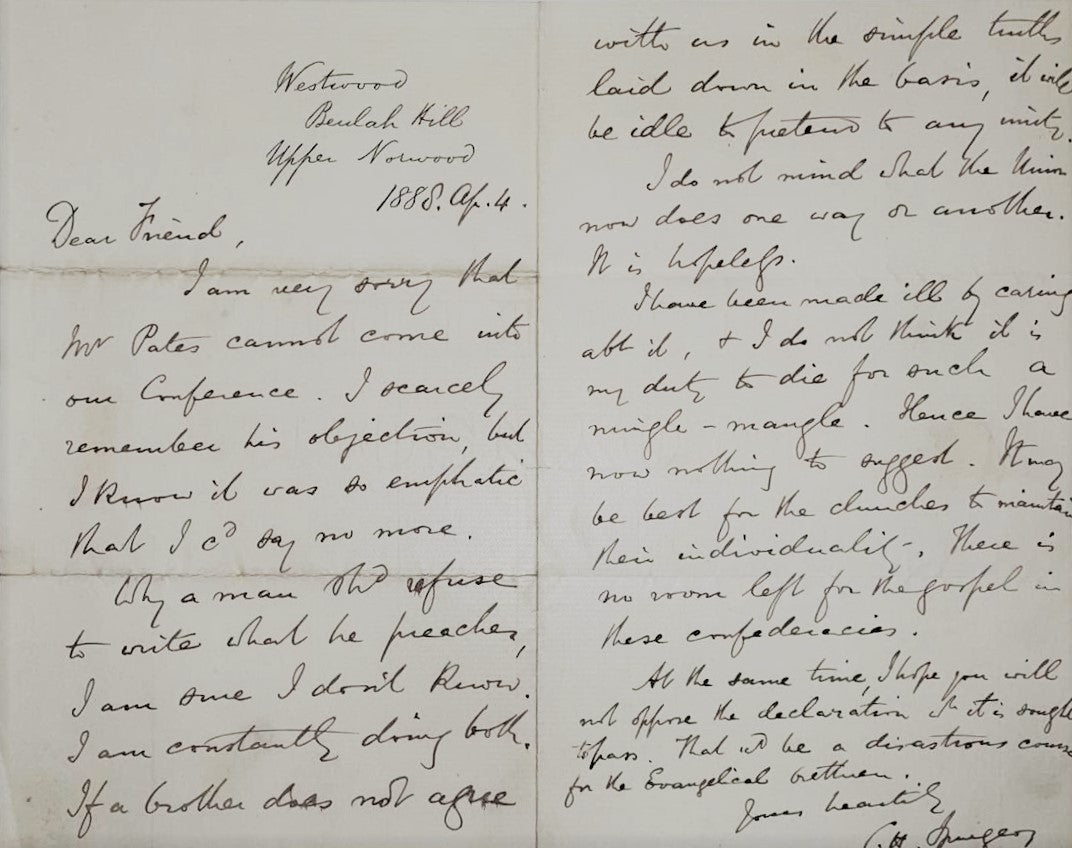 Westwood
Beulah Hill
Upper Norwood
1888. Ap. 4.
Dear Friend,
I am very sorry that
Mr Pates cannot come into
our Conference. I scarcely
remember his objection, but
I know it was so emphatic
that I cd say no more.
Why a man shd refuse
to write what he preaches,
I am sure I don't know.
I am constantly doing both.
If a brother does not agree
with us in the simple truths
laid down in the basis, it will
be idle to pretend to any unity.
I do not mind what the Union
now does one way or another.
It is hopeless.
I have been made ill by caring
abt it, & I do not think it is
my duty to die for such a
mingle-mangle. Hence I have
now nothing to suggest. It may
be best for the churches to maintain
their individuality. There is
no room left for the gospel in
these confederacies.
At the same time, I hope you will
not oppose the declaration wh it is sought
to pass. That wd be a disastrous course
for the Evangelical brethren.
Yours heartily
C. H. Spurgeon